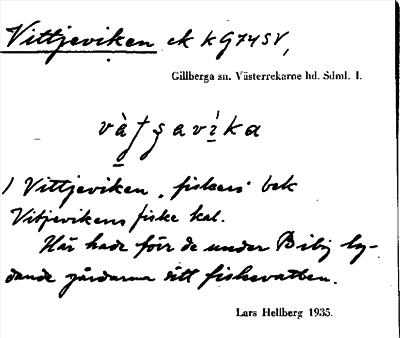 Vittjeviken ek kG74SV,
Gillberga sn. Västerrekarne hd. Sdml. I.
vàtʃavìka
1 Vittjeviken, fiskers bek
Vitjevikens fiske kal.
Här hade förr de under Biby ly-
dande gårdarna sitt fiskevatten.
Lars Hellberg 1935.